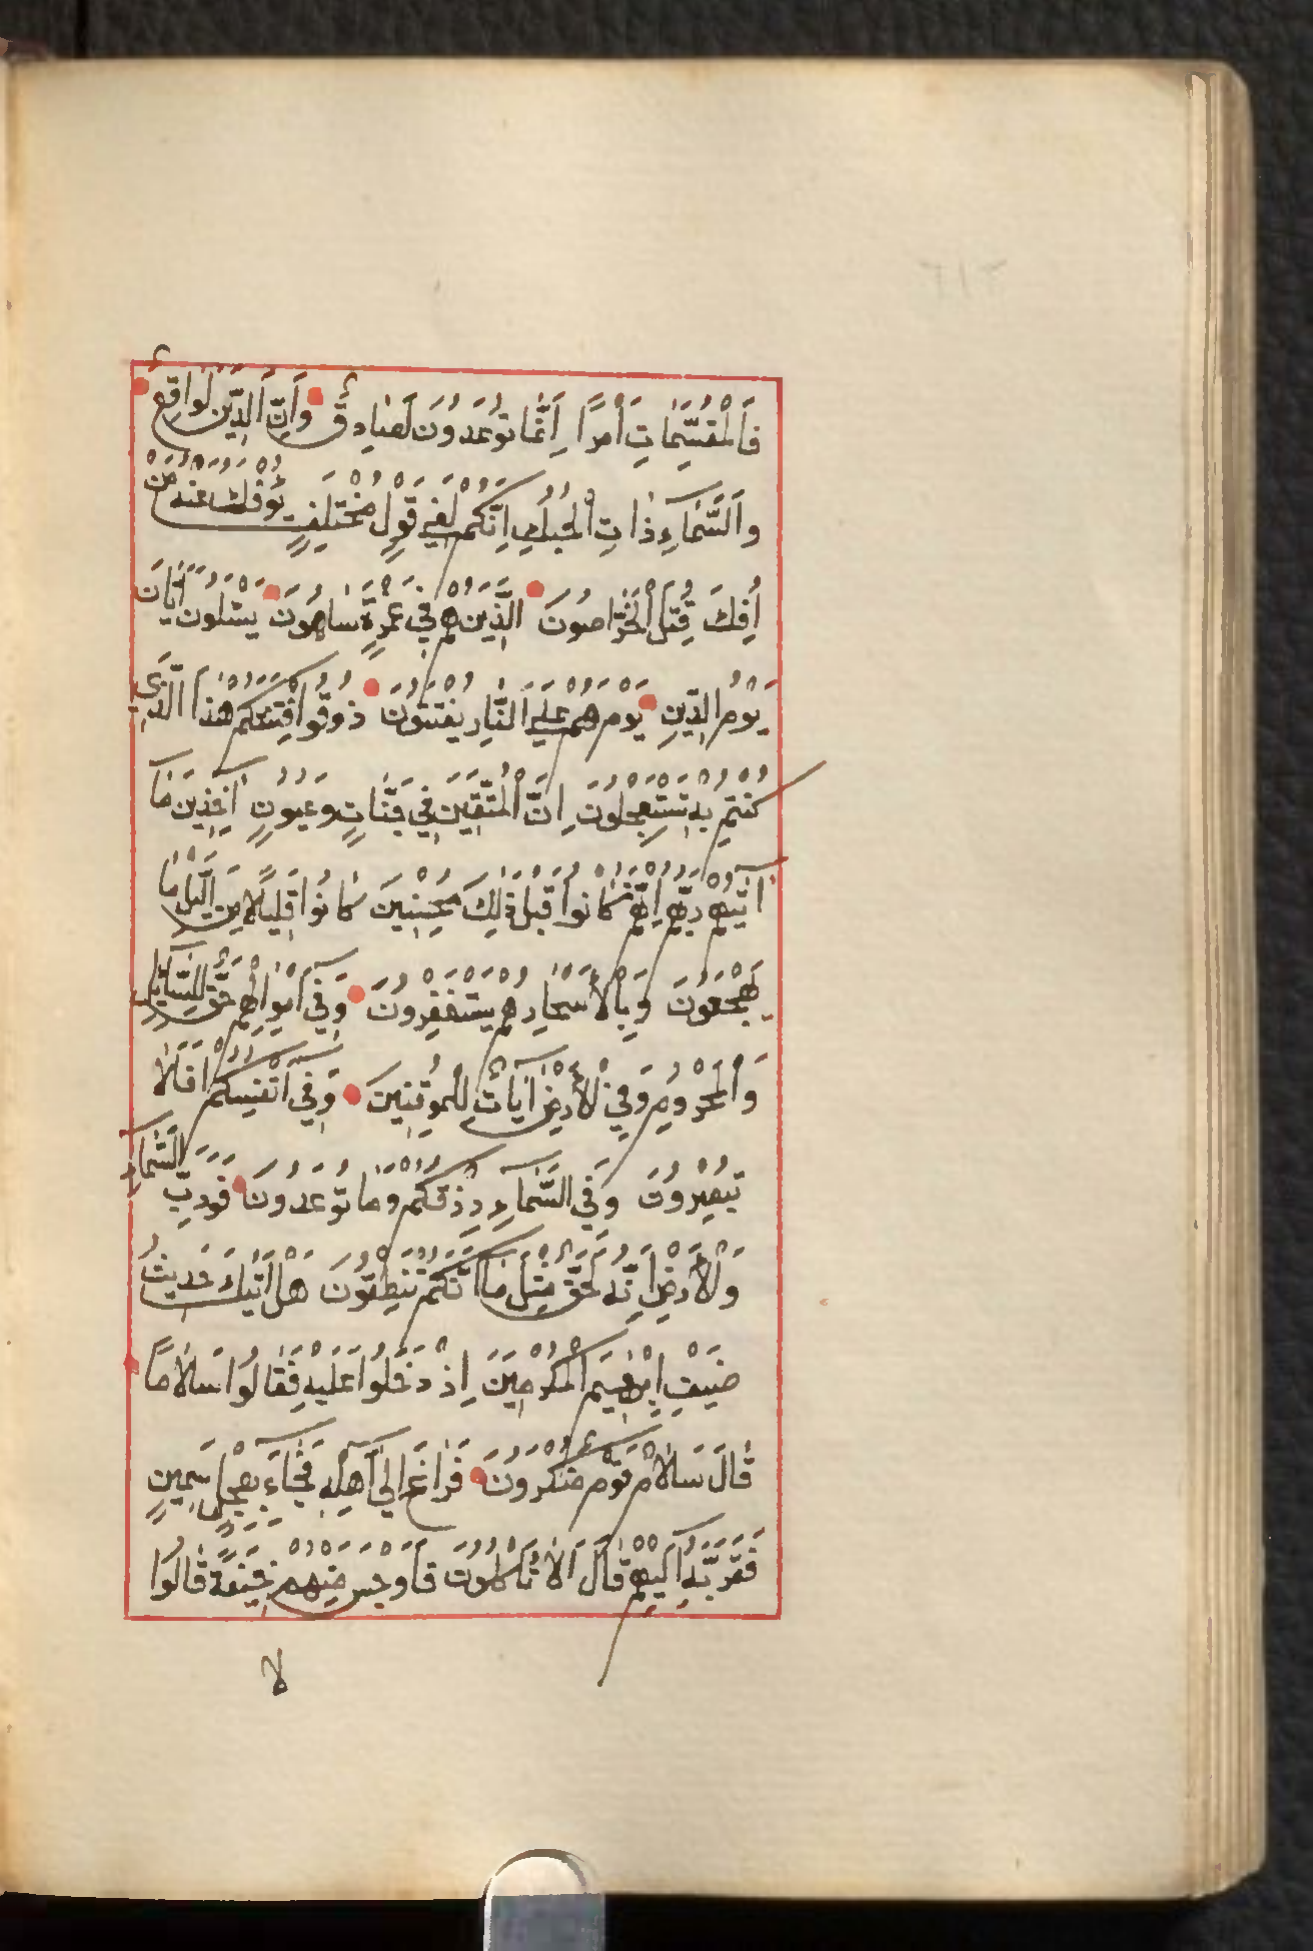 فَٱلْمُقَسِّمَاتِ أَمْرًا إِنَّمَا تُوعَدُونَ لَصَادِقٌ وَإِنَّ ٱلدِّينَ لَوَاقِعٌ
وَٱلسَّمَآءِ ذَاتِ ٱلْحُبُكِ إِنَّكُمْ لَفِي قَوْلٍ مُخْتَلِفٍ يُؤْفَكُ عَنْهُ مَنْ
أُفِكَ قُتِلَ ٱلْخَرَّاصُونَ ٱلَّذِينَ هُمْ فِي غَمْرَةٍ سَاهُونَ يَسْئَلُونَ أَيَّانَ
يَوْمُ ٱلدِّينِ يَوْمَ هُمْ عَلَى ٱلنَّارِ يُفْتَنُونَ ذُوقُوا فِتْنَتَكُمْ هٰذَا ٱلَّذِي
كُنْتُمْ بِهِ تَسْتَعْجِلُونَ إِنَّ ٱلْمُتَّقِينَ فِي جَنَّاتٍ وَعُيُونٍ آخِذِينَ مَا
آتٰيهُمْ رَبُّهُمْ إِنَّهُمْ كَانُوا قَبْلَ ذٰلِكَ مُحْسِنِينَ كَانُوا قَلِيلًا مِنَ ٱلَّيْلِ مَا
يَهْجَعُونَ وَبِالْأَسْحَارِ هُمْ يَسْتَغْفِرُونَ وَفِي أَمْوَالِهِمْ حَقٌّ لِلسَّآئِلِ
وَٱلْمَحْرُومِ وَفِي ٱلْأَرْضِ آيَاتٌ لِلْمُوقِنِينَ وَفِي أَنْفُسِكُمْ أَفَلَا
تُبْصِرُونَ وَفِي ٱلسَّمَآءِ رِزْقُكُمْ وَمَا تُوعَدُونَ فَوَرَبِّ ٱلسَّمَآءِ
وَٱلْأَرْضِ إِنَّهُ لَحَقٌّ مِثْلَ مَا أَنَّكُمْ تَنْطِقُونَ هَلْ أَتٰيكَ حَدِيثُ
ضَيْفِ إِبْرٰهِيمَ ٱلْمُكْرَمِينَ إِذْ دَخَلُوا عَلَيْهِ فَقَالُوا سَلَامًا
قَالَ سَلَامٌ قَوْمٌ مُنْكَرُونَ فَرَاغَ إِلَى أَهْلِهِ فَجَآءَ بِعِجْلٍ سَمِينٍ
فَقَرَّبَهُ إِلَيْهِمْ قَالَ أَلَا تَأْكُلُونَ فَأَوْجَسَ مِنْهُمْ خِيفَةً قَالُوا
لا